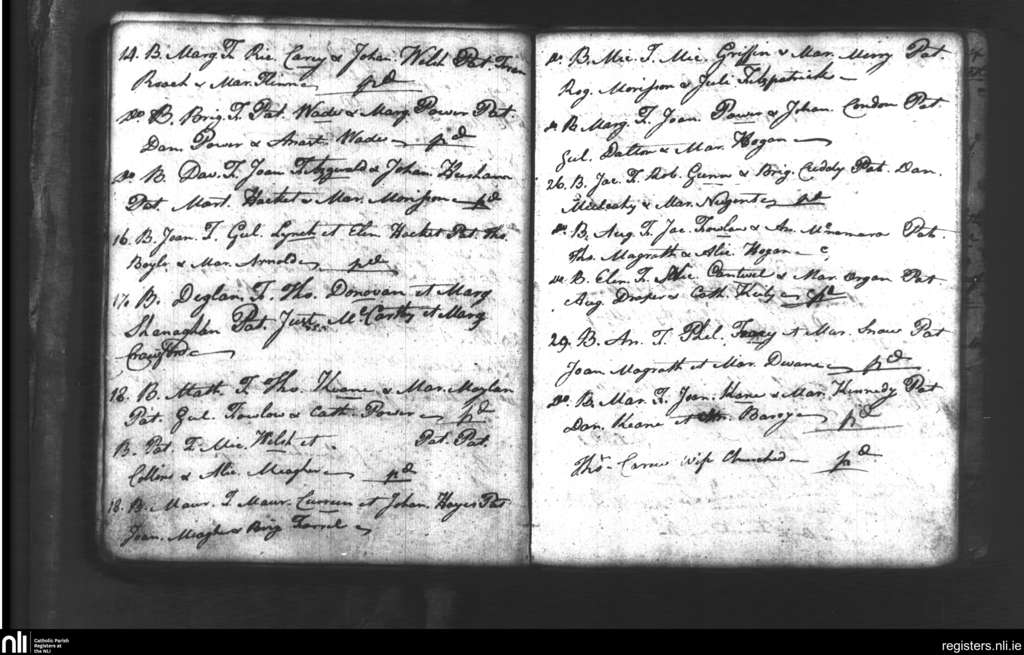 14. B. Marg. F. Ric. Carey & Johan. Welsh Pat. Fran
Roach & Mar. Flinn pd
Do B. Brig. F. Pat. Wade & Marg Power Pat.
Dan. Power & Anast. Wade pd
Do B. Dav. F. Joan Fitzgerald & Johan
Pat. Mart. Hacket & Mar. Morisson pd
16. B. Joan. F. Gul. Lynch et Elen Hacket Pat. Tho.
Boyle & Mar. Arnold pd
17. B. Deglan. F. Tho. Donovan et Marg
Shanaghan Pat. Just. McCarthy et Marg
Crawford
18. B. Math. F. Tho. Keane & Mar. Moylan
Pat. Gul. Fowlow & Cath. Power pd
B. Pat. F. Mic. Welsh et - Pat. Pat.
Collins & Alic. Meagher pd
18. B. Maur. F. Maur. Curreen et Johan. Hayes Pat
Joan. Meagher & Brig Farrel
Do B. Mic. F. Mic. Griffin & Mar. Merry Pat.
Rog. Morisson & Juli Fitzpatrick
Do B. Marg. F. Joan. Power & Johan. Condon Pat
Gul. Dalton & Mar. Hogan
26. B. Jac. F. Rob. Gunn & Brig. Cuddy Pat. Dan.
& Mar. Nugent pd
Do B. Aug. F. Jac. Fowlow & An. McNamara Pat.
Tho. Magrath & Alic. Hogan
Do B. Elen. F. Mic. Cantwel & Mar. Organ Pat
Aug Draper & Cath. Kiely pd
29. B. An. F. Phel. & Mar. Snow Pat
Joan Magrath et Mar. Dwane pd
Do B. Mar. F. Joan. Kane & Mar. Kennedy Pat
Dan. Keane et An. Baroy pd
Thos. Carew Wife Churched pd
nli
Catholic Parish
Registers at
the NLI
registers.nli.ie